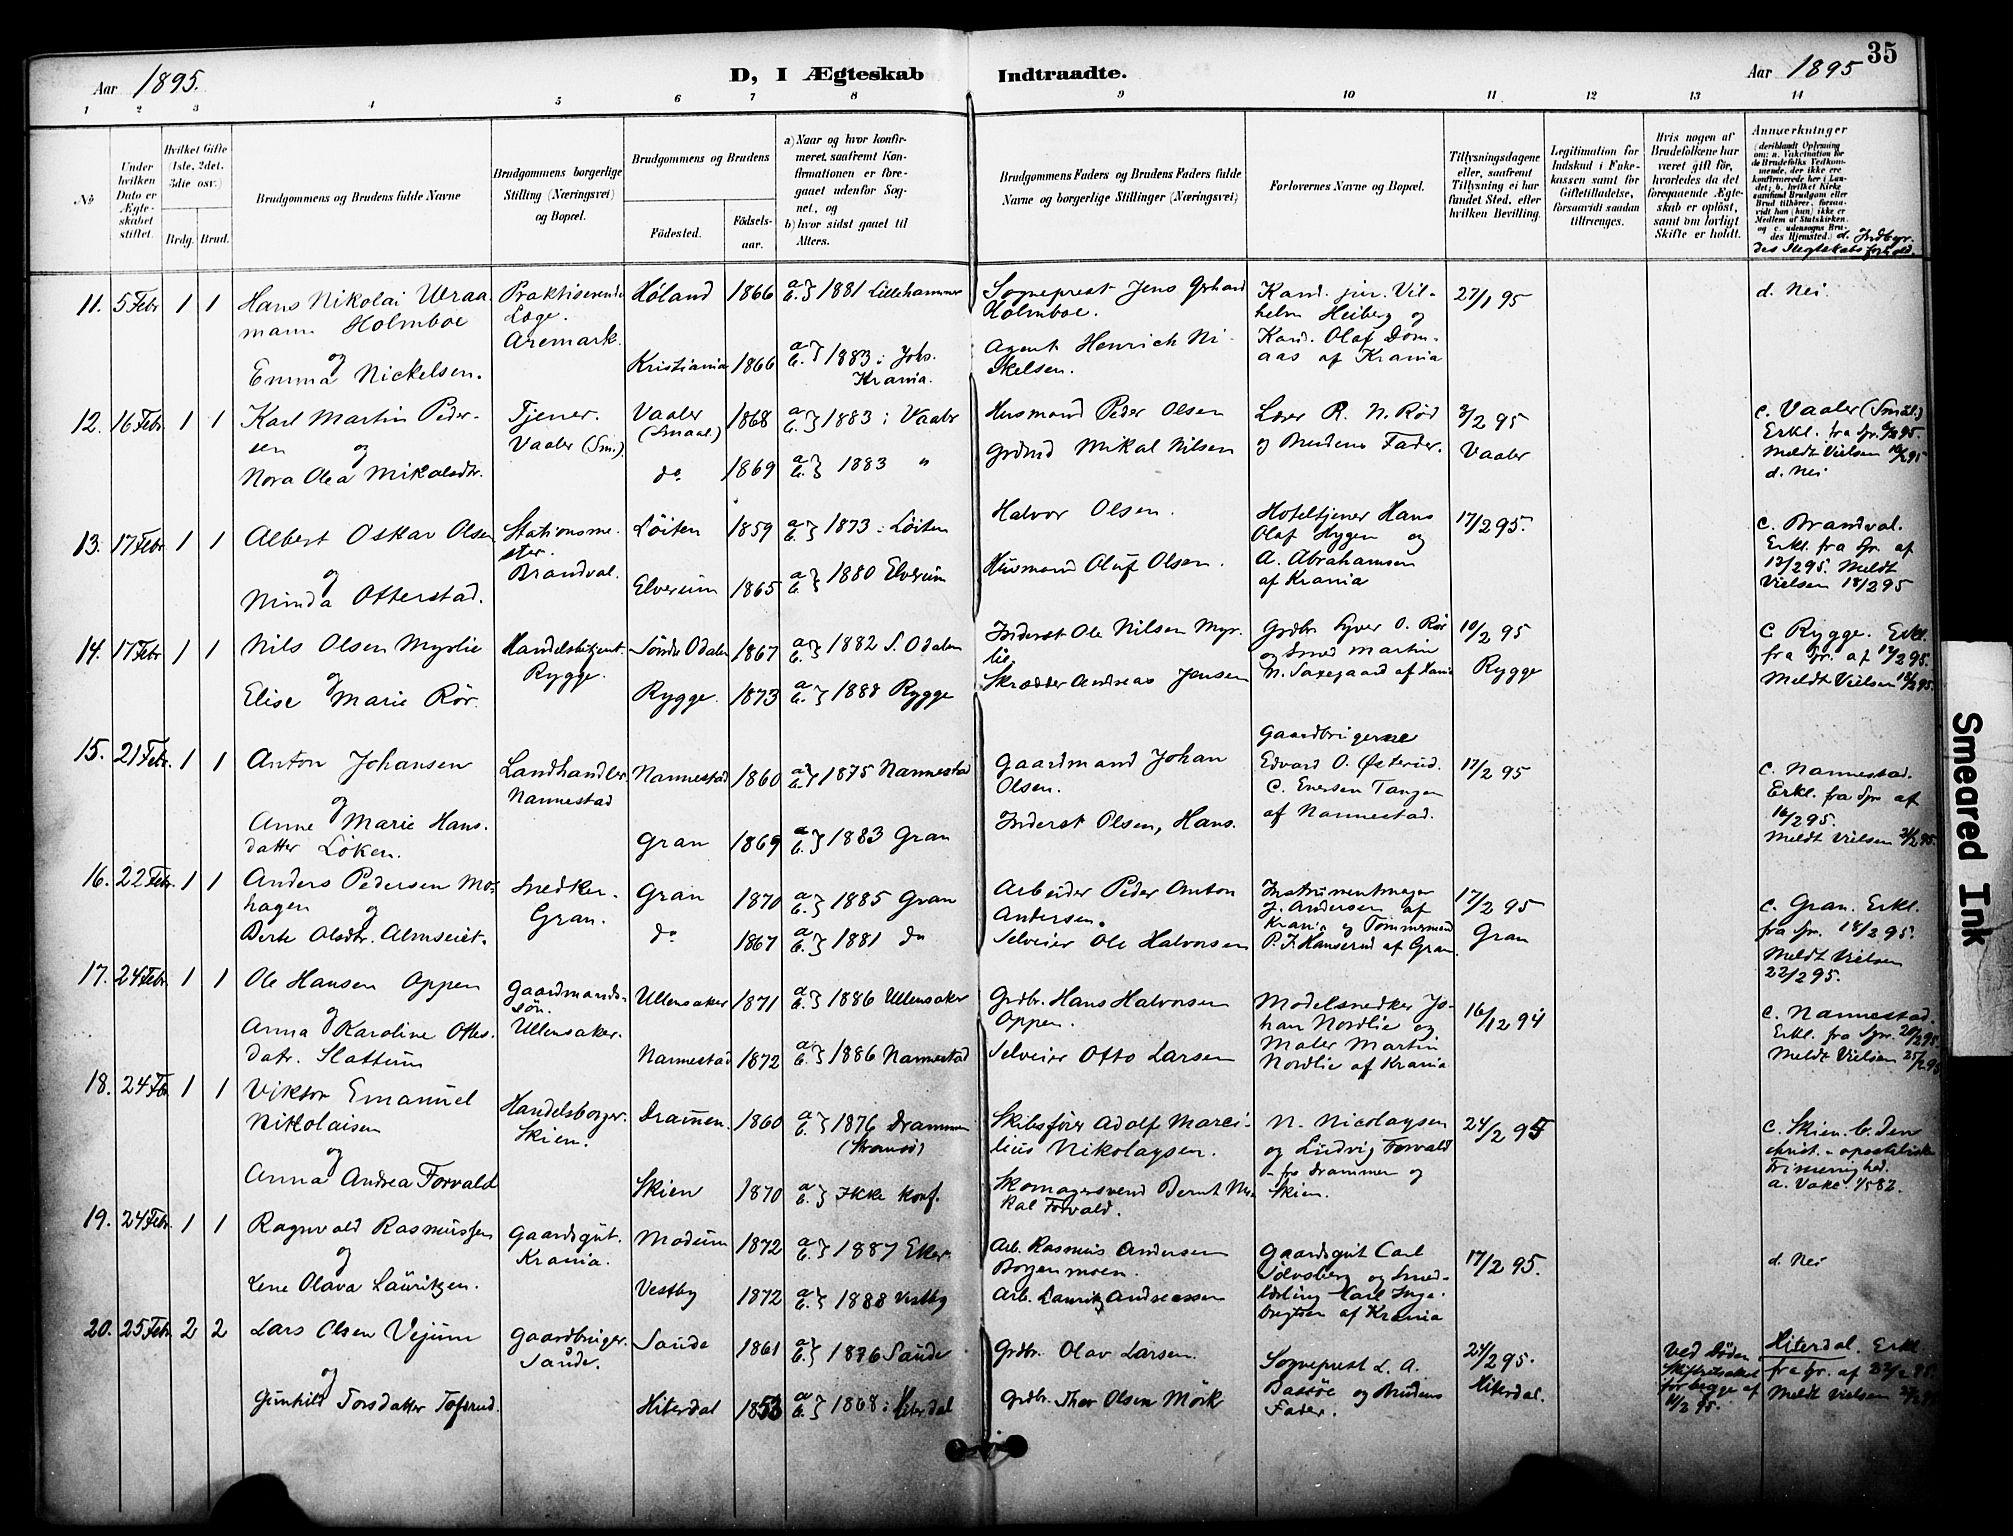 35
Aar 1895.
D, I Ægteskab Indtraadte.
Aar 1895
1 2 3 4 5 6 7 8 9 10 11 12 13 14
No
Under hvilken Dato er Ægteskabet stiftet.
Hvilket Gifte (1ste, 2det, 3die osv.)
Brdg. Brud.
Brudgommens og Brudens fulde Navne
Brudgommens borgerlige Stilling (Næringsvei) og Bopæl.
Brudgommens og Brudens
Fødested.
Fødselsaar.
a) Naar og hvor konfirmeret, saafremt Konfirmationen er foregaaet udenfor Sognet, og
b) hvor sidst gaaet til Alters.
Brudgommens Faders og Brudens Faders fulde Navne og borgerlige Stillinger (Næringsvei)
Forlovernes Navne og Bopæl.
Tillysningsdagene eller, saafremt Tillysning ei har fundet Sted, efter hvilken Bevilling.
Legitimation for Indskud i Enkekassen samt for Giftetilladelse, forsaavidt saadan tiltrænges.
Hvis nogen af Brudefolkene har været gift før, hvorledes da det foregaaende Ægteskab er opløst, samt om lovligt Skifte er holdt.
Anmærkninger (deriblandt Oplysning om: a. Vakcination for de Brudefolks Vedkommende, der ikke ere konfirmerede her i Landet; b. hvilket Kirkesamfund Brudgom eller Brud tilhører, forsaavidt han (hun) ikke er Medlem af Statskirken, og c. udensogns Brudes Hjemsted.) d. Indbyrdes Slegtskabsforhold.
11. 5 Febr 1 1 Hans Nikolai Wraamann Holmboe
og
Emma Nickelsen.
Praktiserende Læge.
Aremark.
Høland 1866 a. b. } 1881 Lillehammer
Kristiania 1866 a. b. } 1883 i Johs. Krania.
Sogneprest Jens Gerhard Holmboe.
Agent Henrich Nikelsen.
Kand. jur. Vilhelm Heiberg og Kand. Olaf Domaas af Krania
27/1 95
d. Nei.
12. 16 Febr 1 1 Karl Martin Pedersen
og
Nora Olea Mikalsdtr.
Tjener.
Vaaler (Sm.)
Vaaler (Smaal.) 1868 a. b. } 1883 i Vaaler
do 1869 a. b. } 1883 "
Husmand Peder Olsen
Grdmd Mikal Nilsen
Lærer R. N. Rød og Brudens Fader.
3/2 95
Vaaler
c. Vaaler (Smål.)
Erkl. fra Spr.
Meldt Vielsen
d. Nei
13. 17 Febr 1 1 Albert Oskar Olsen
og
Ninda Otterstad.
Stationsmester.
Brandval.
Løiten 1859 a. b. } 1873 i Løiten
Elverum 1865 a. b. } 1880 Elverum
Halvor Olsen.
Husmand Oluf Olsen.
Hoteltjener Hans Olaf Hygen og
A. Abrahamsen af Krania
17/2 95.
c. Brandval.
Erkl. fra Spr. af 12/2 95. Meldt Vielsen 18/2 95
14. 17 Febr 1 1 Nils Olsen Myrlie
og
Elise Marie Rör.
Handelsbetjent.
Rygge.
Söndre Odalen 1867 a. b. } 1882 S. Odalen
Rygge. 1873 a. b. } 1888 Rygge
Inderst Ole Nilsen Myrlie
Skrædder Andreas Jensen
Grdbr. Syver O. Rør og Smed Martin M. Saxegaard af Krania
10/2 95
Rygge
c Rygge. Erkl. fra Spr. af 12/2 95.
Meldt Vielsen 18/2 95.
15. 21 Febr. 1 1 Anton Johansen
og
Anne Marie Hansdatter Löken.
Landhandler
Nannestad
Nannestad 1860 a. b. } 1875 Nannestad
Gran 1869 a. b. } 1883 Gran
Gaardmand Johan Olsen.
Inderst Olsen, Hans.
Gaardbrugerne
Edvard O. Østerud.
C. Enersen Tangen af Nannestad.
17/2 95
c. Nannestad.
Erkl. fra Spr. af
Meldt Vielsen
16. 22 Febr. 1 1 Anders Pedersen Mohagen
og
Berte Olsdtr. Almseiet.
Snedker.
Gran.
Gran 1870 a. b. } 1885 Gran
do 1867 a. b. } 1881 do
Arbeider Peder Anton Andersen.
Selveier Ole Halvorsen
Instrumentmager J. Andersen af Krania og Tømmermand P. J. Hanserud af Gran.
17/2 95
Gran
c. Gran. Erkl. fra Spr. 18/2 95.
Meldt Vielsen 22/2 95.
17. 24 Febr. 1 1 Ole Hansen Oppen
og
Anna Karoline Ottesdatr. Slattum
Gaardmandssön.
Ullensaker.
Ullensaker 1871 a. b. } 1886 Ullensaker
Nannestad 1872 a. b. } 1886 Nannestad
Grdbr. Hans Halvorsen Oppen.
Selveier Otto Larsen
Modelsnedker Johan Nordlie og Maler Martin Nordlie af Krania
16/12 94
c. Nannestad.
Erkl. fra Spr. 20/2 95.
Meldt Vielsen 25/2 95
18. 24 Feb 1 1 Viktor Emanuel Nikolaisen
og
Anna Andrea Forvald
Handelsborger.
Skien.
Drammen. 1860 a. b. } 1876 Drammen (Strømsö)
Skien 1870 a. b. } Ikke konf.
Skibsfører Adolf Marcilius Nikolaysen.
Skomagersvend Bernt Mikal Forvald.
N. Nicolaysen og Ludvig Forvald fra Drammen og Skien.
24/2 95
c. Skien. b. Den christ.-apostoliske Frimenighed.
a. Vakc. 1582.
19. 24 Febr. 1 1 Ragnvald Rasmussen
og
Lene Olava Lauritzen.
Gaardsgut.
Krania.
Modum 1872 a. b. } 1887 Eker.
Vestby 1872 a. b. } 1888 Vestby
Arb. Rasmus Andersen Borgenmoen.
Arb. Lauritz Andreassen
Gaardsgut Carl Solvsberg og Smedlærling Karl Ingebregtsen af Krania
17/2 95.
d. Nei
20. 25 Febr. 2 2 Lars Olsen Vejum
og
Gunhild Torsdatter Tofsrud.
Gaardbruger.
Saude.
Saude 1861 a. b. } 1876 Saude
Hiterdal 1853 a. b. } 1868 i Hiterdal
Grdbr. Olav Larsen.
Grdbr. Thor Olsen Mörk
Sogneprest L. A. Bassöe og Brudens Fader.
24/2 95.
Hiterdal.
Ved Döden. Skifteattest for begge af 11/2 95.
Hiterdal. Erkl. fra Spr. af 22/2 95.
Meldt Vielsen
Smeared Ink